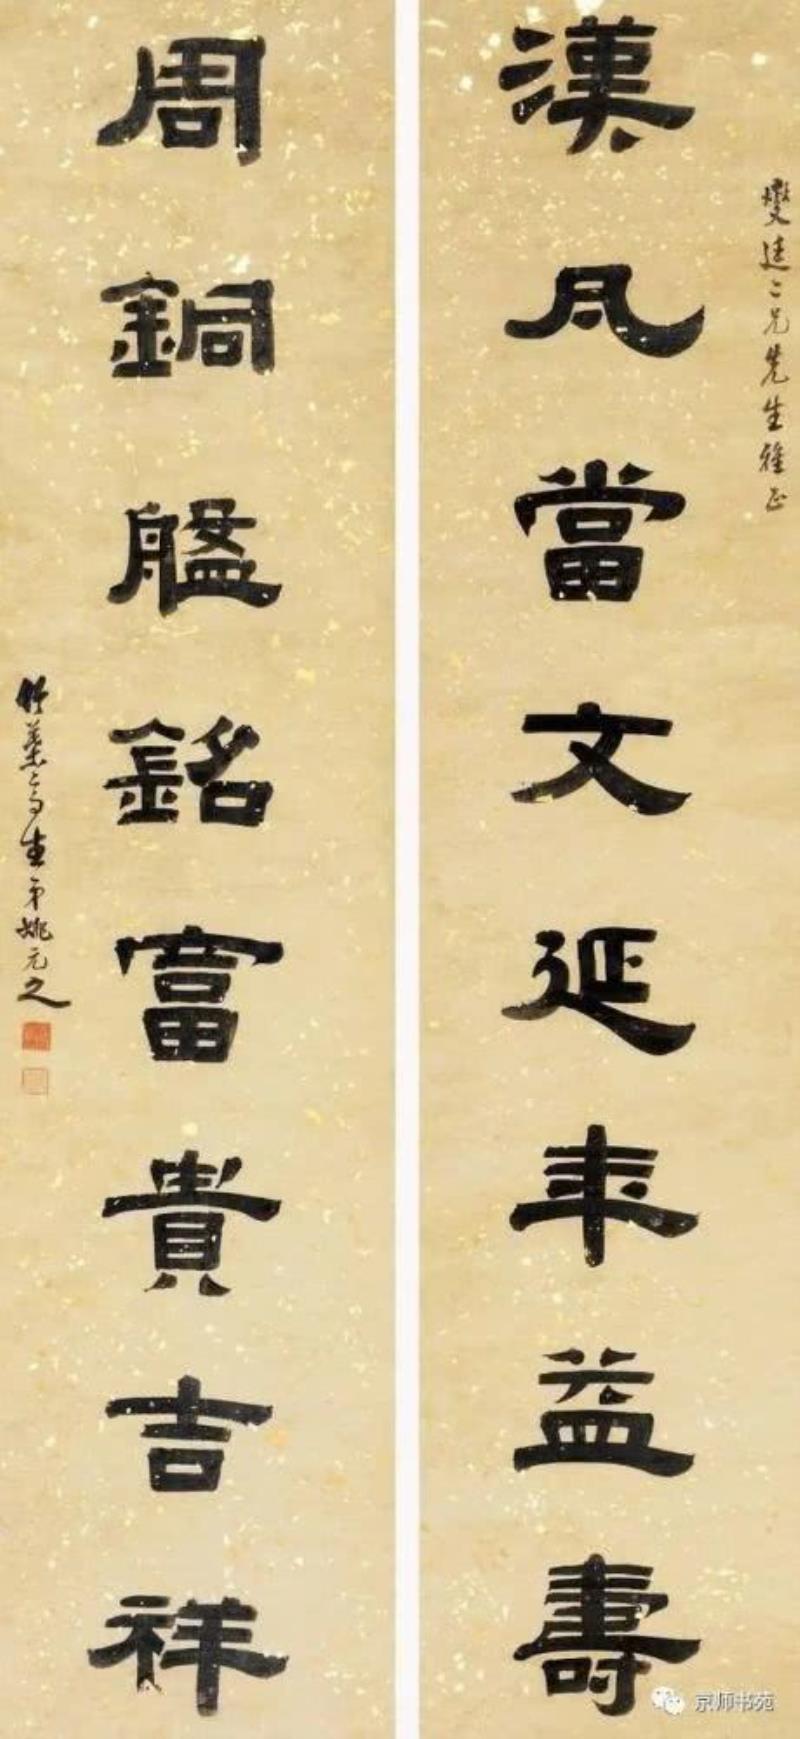 燮廷二兄先生雅正
漢瓦當文延年益壽
周銅盤銘富貴吉祥
竹葉亭生弟姚元之
京师书苑